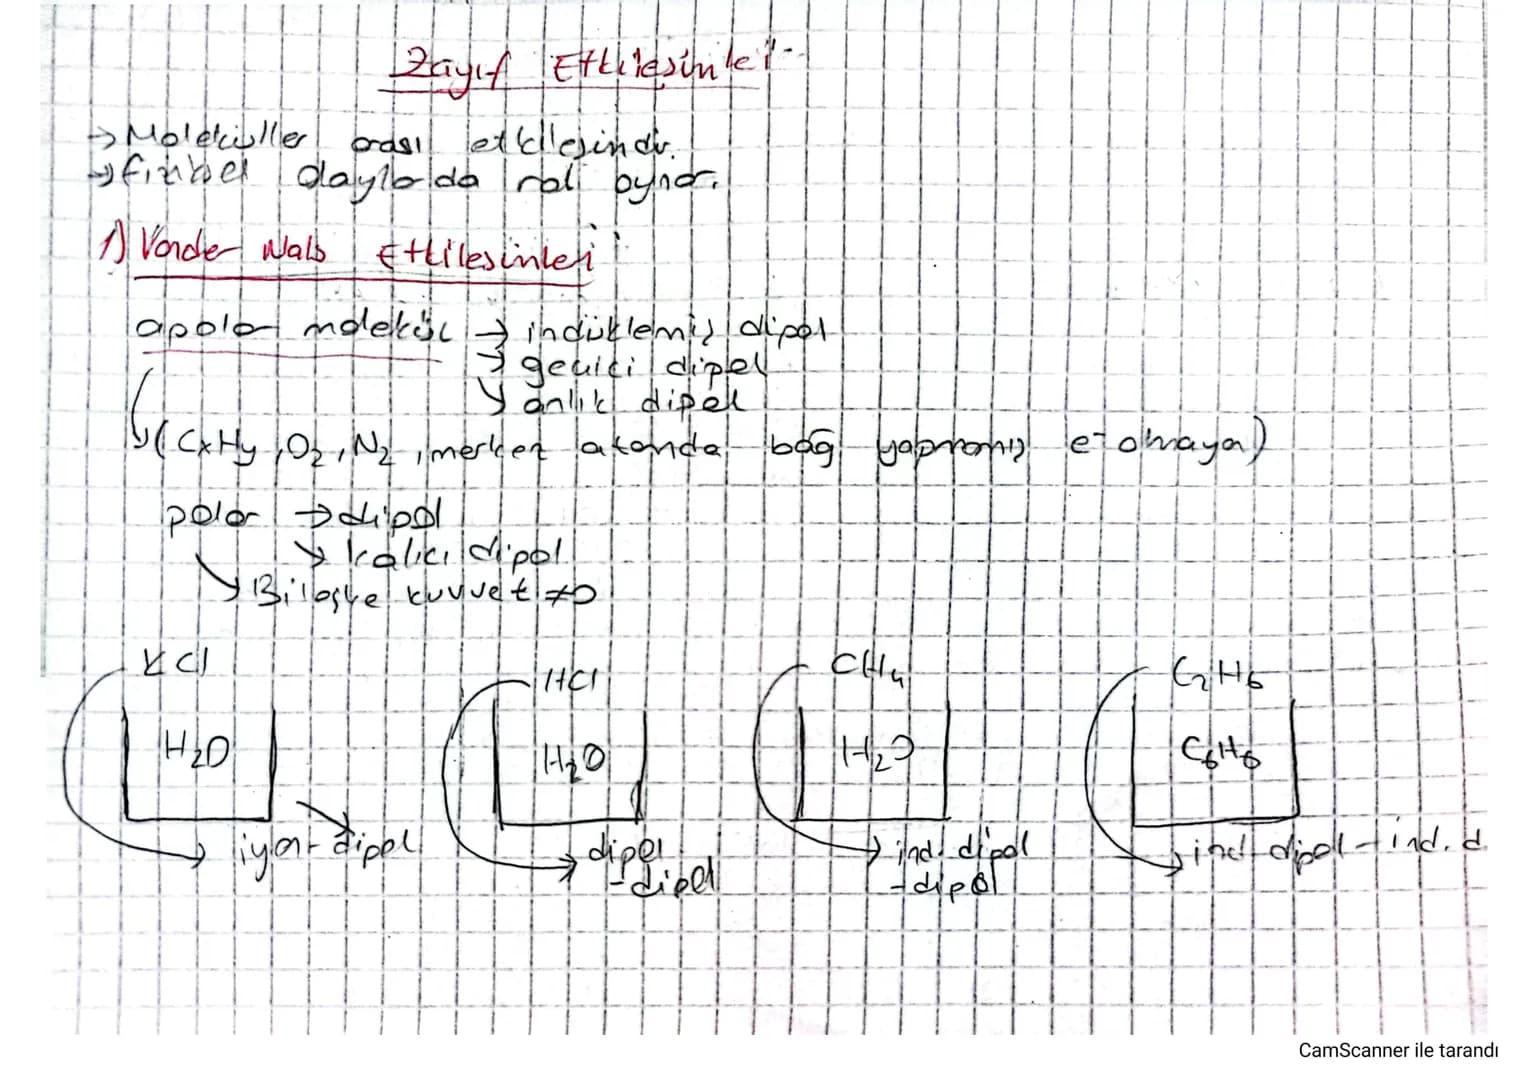 Zayıf Etkileşimler
→ Moleküller arası etkileşimdir.
→ fiziksel olaylarda rol oynar.
1) Vander Wals Etkileşimleri
apolar molekül → indüklemiş dipol
→ geçici dipol
→ anlık dipol
(CxHy, O2, N2, merkez atomda bağ yapmamış e- olmayan)
polar → dipol
→ kalıcı dipol
→ Bileşke kuvvet ≠0
KCl HCl CH4 C2H6
H2O H2O H2O C6H6
iyon-dipol dipol -dipol ind. dipol -dipol ind dipol - ind. d
CamScanner ile tarandı